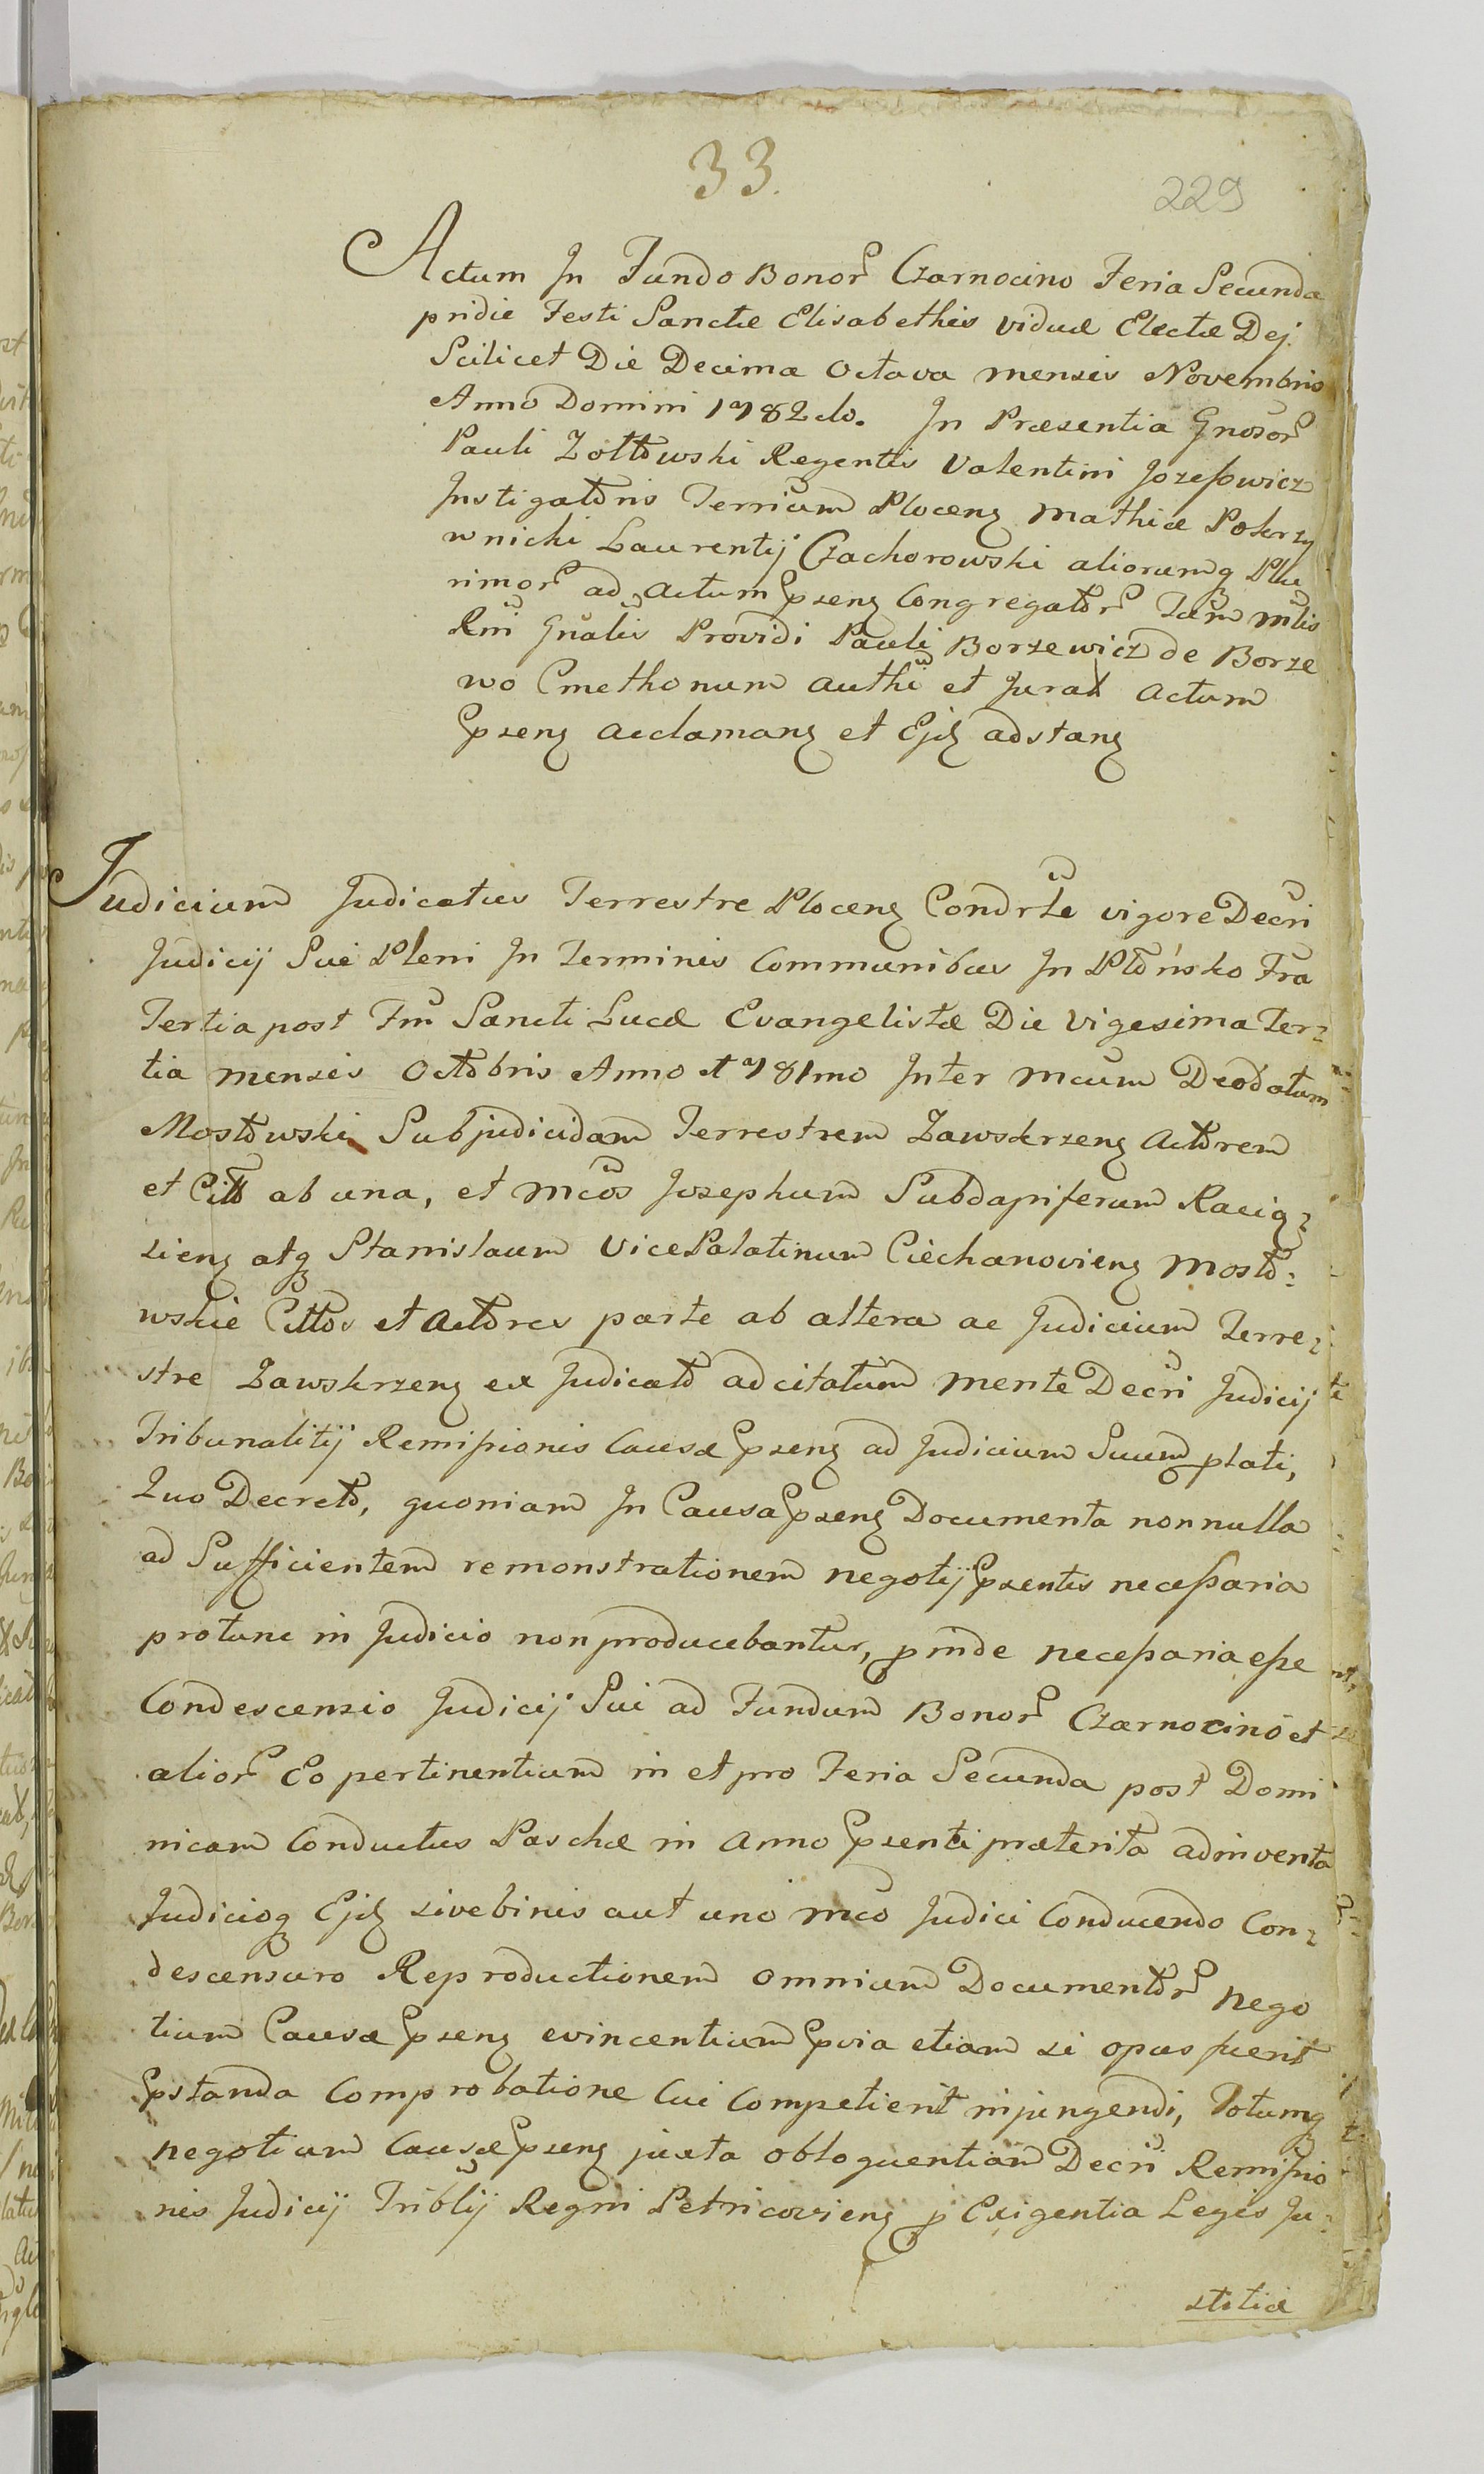 33.
229
Actum In Fundo Bonor Czarnocino Feria Secunda
pridie Festi Sanctæ Elisabethis viduæ Electæ Dej.
Scilicet Die Decima Octava mensis Novembris
Anno Domini 1782do. In Præsentia Gnosor
Pauli Zołtowski Regentis Valentini Jozefowicz
Instigatoris Terrium Plocens Mathiæ Pokrzy
wnicki Laurentij Czachorowski aliorumq Plu
rimor ad Actum Psens Congregator Tam mlis
Rni Gnalis Providi Pauli Borzewicz de Borze
wo Cmethonum authi et Jurat Actum
Psens acclamans et Ejd adstans
Judicium Judicatus Terrestre Plocens Condrle vigore Decri
Judicij Sui Pleni In Terminis Communibus In Płońsko Fra
Tertia post Fm Sancti Lucæ Evangelistæ Die Vigesima Ter:
tia mensis Octobris Anno 1781mo Inter Mcum Deodatum
Mostowski Subjudicidam Terrestrem Zawskrzens Actorem
et Citt ab una, et Mcos Josephum Subdapiferum Raciq:
ziens atq Stanislaum VicePalatinum Ciechanoviens Mosto:
wskie Cittos et Actores parte ab altera ac Judicium Terre:
stre Zawskrzens ex Judicato adcitatum mente Decri Judicij
Tribunalitij Remissionis Causæ Psens ad Judicium Suum plati,
Quo Decreto, quoniam In Causa Psens Documenta nonnulla
ad Sufficientem remonstrationem negotij Psentis necessaria
protunc in Judicio non producebantur, pinde necessaria esse
Condescensio Judicij Sui ad Fundum Bonor Czarnocino et
alior Eo pertinentium in et pro Feria Secunda post Domi
nicam Conductus Paschæ in Anno Psenti præterita adinventa
Judicioq Ejd sive binis aut uno mco Judici Conducendo Con:
descensuro Reproductionem omnium Documentor nego
tium Causæ Psens evincentium Pvia etiam si opus fuerit
Pstanda Comprobatione Cui Competierit injungendi, Totumq
negotium Causæ Psens juxta obloquentiam Decri Remissio
nis Judicij Triblij Regni Petricoviens p Exigentia Legis Ju:
stitiæ